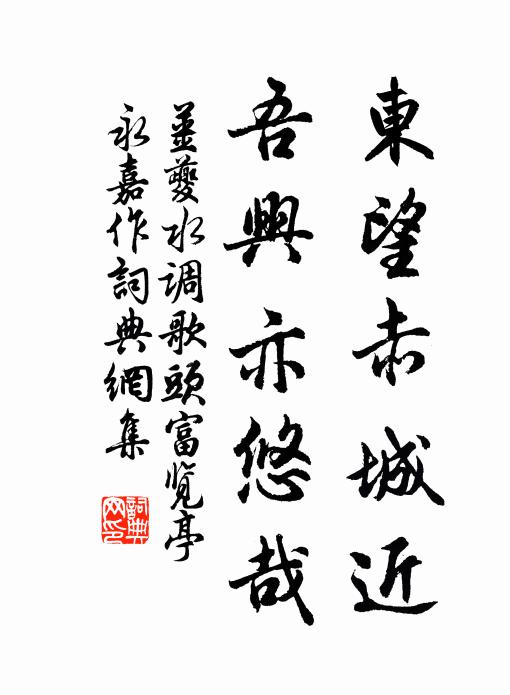 東望赤城近
吾興亦悠哉
姜夔水调歌頭富览亭
永嘉作詞典網集
詞典網印